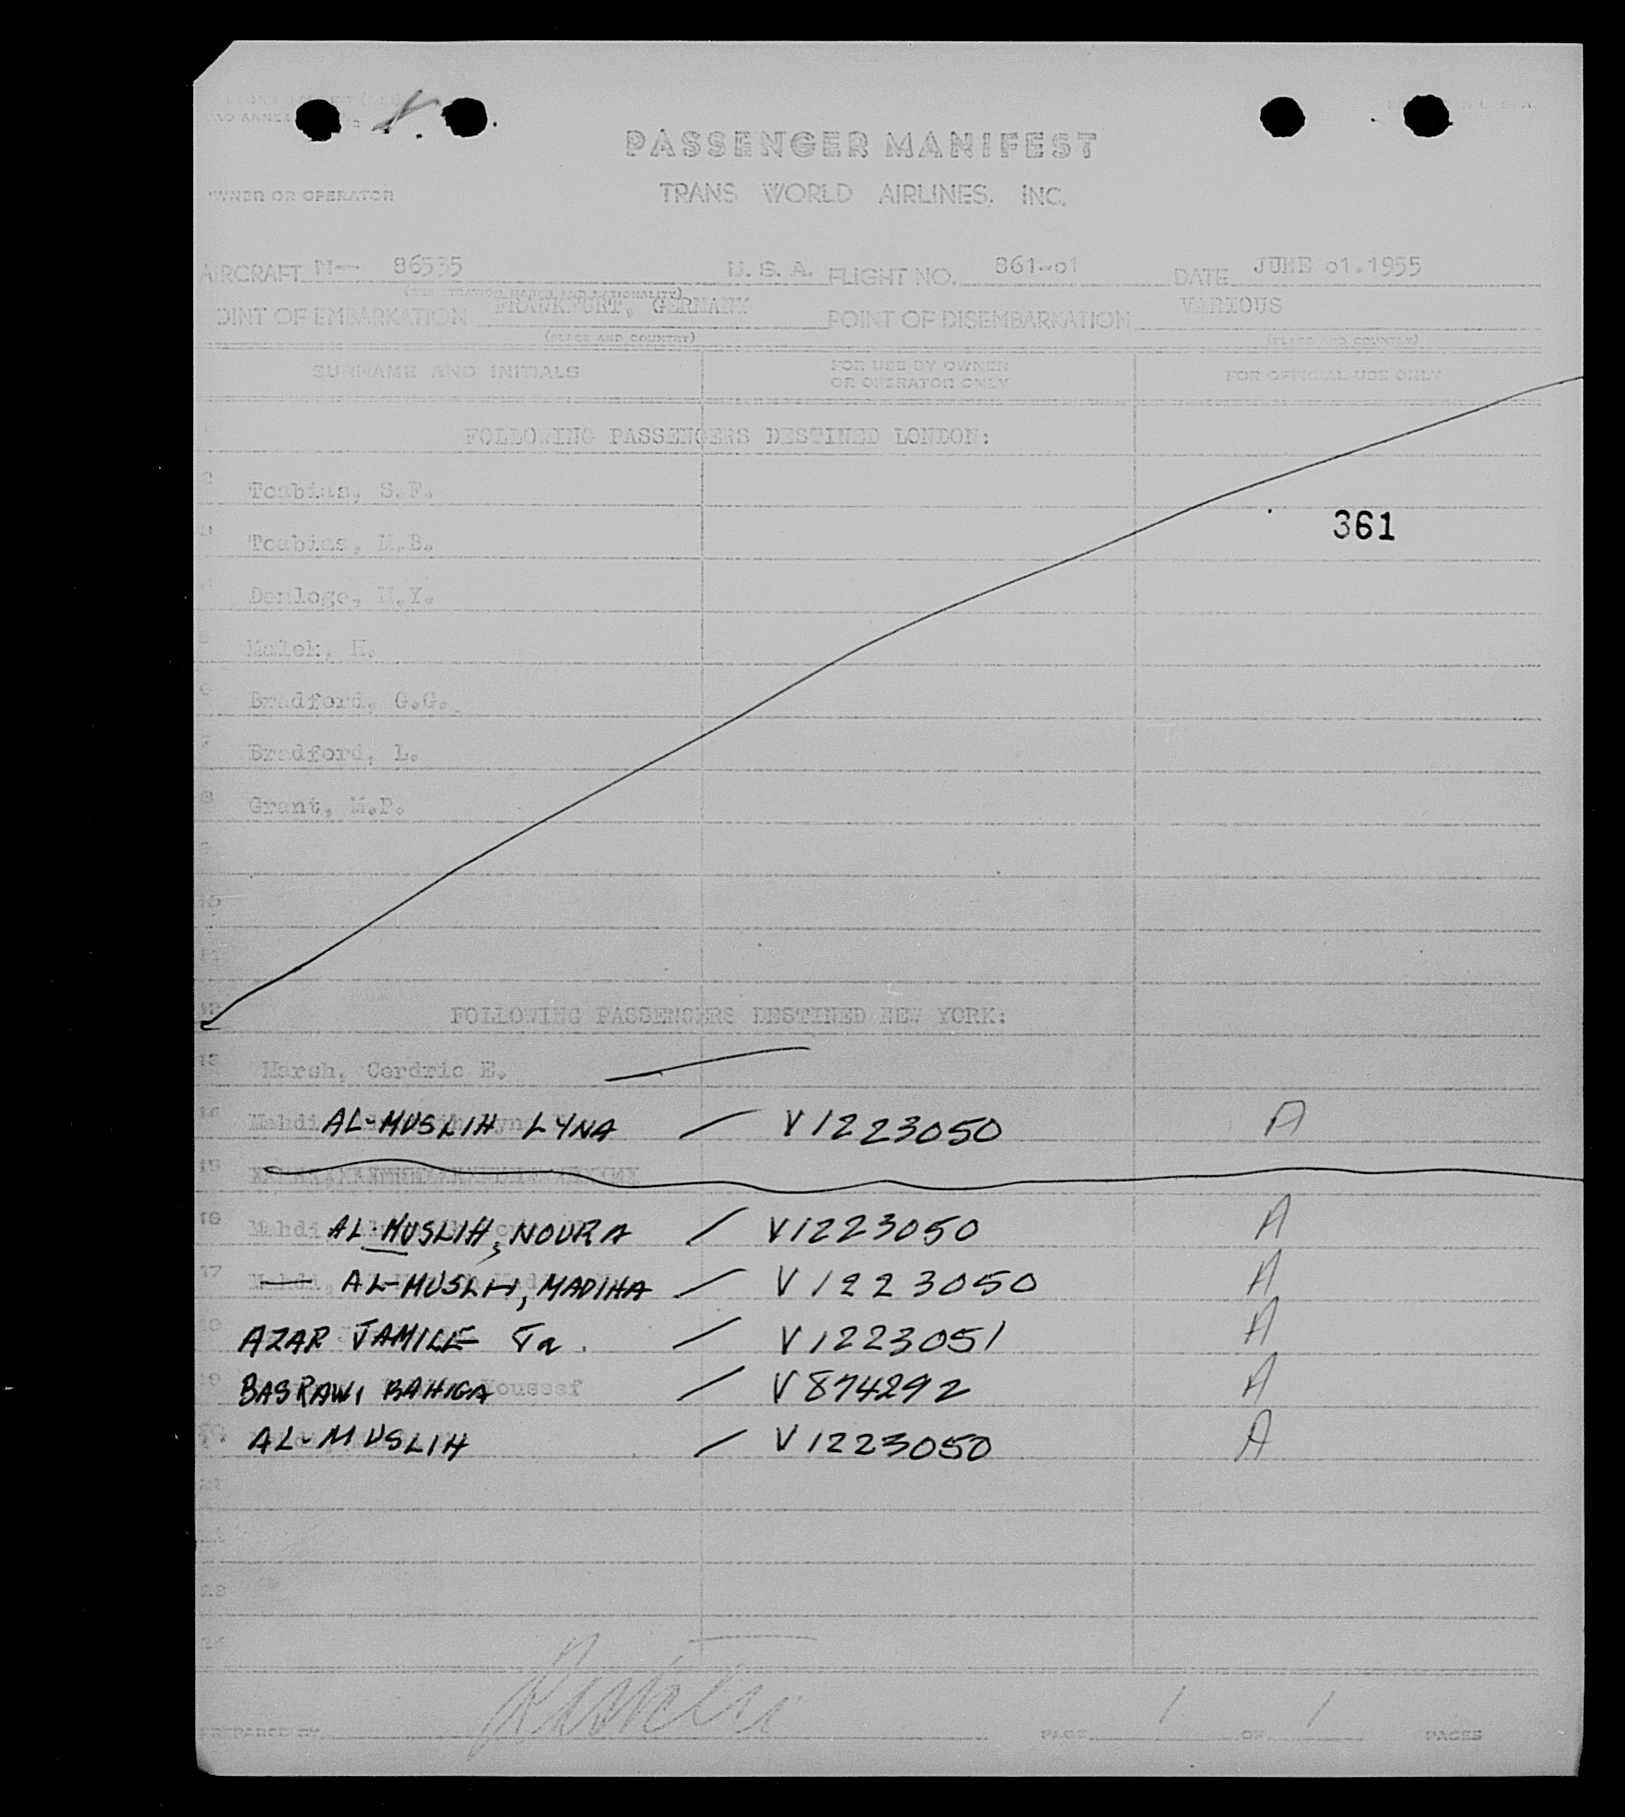 PASSENGER MANIFEST
OWNER OR OPERATOR TRANS WORLD AIRLINES, INC.
AIRCRAFT N-- 86535 U. S. A. FLIGHT NO. 861-01 DATE JUNE 01.1955
POINT OF EMBARKATION FRANKFURT, GERMANY POINT OF DISEMBARKATION VARIOUS
(PLACE AND COUNTRY) (PLACE AND COUNTRY)
SURNAME AND INITIALS FOR USE BY OWNER OR OPERATOR ONLY FOR OFFICIAL USE ONLY
FOLLOWING PASSENGERS DESTINED LONDON:
2 S.F.
361
3 M.B.
4 M.Y.
5 H.
6 Bradford, G.G.
7 Bradford, L.
8 Grant, M.P.
9
10
11
12 FOLLOWING PASSENGERS DESTINED NEW YORK:
13 Marsh, Cerdric E.
14 Mahdi AL-MUSLIH LYNA / V1223050 A
15
16 Mahdi AL-MUSLIH, NOURA / V1223050 A
17 AL-MUSLIH, MADIHA / V1223050 A
AZAR JAMILE / V1223051 A
19 BASRAWI BAHIGA Youssef / V874292 A
20 AL-MUSLIH / V1223050 A
PREPARED BY PAGE 1 OF 1 PAGES